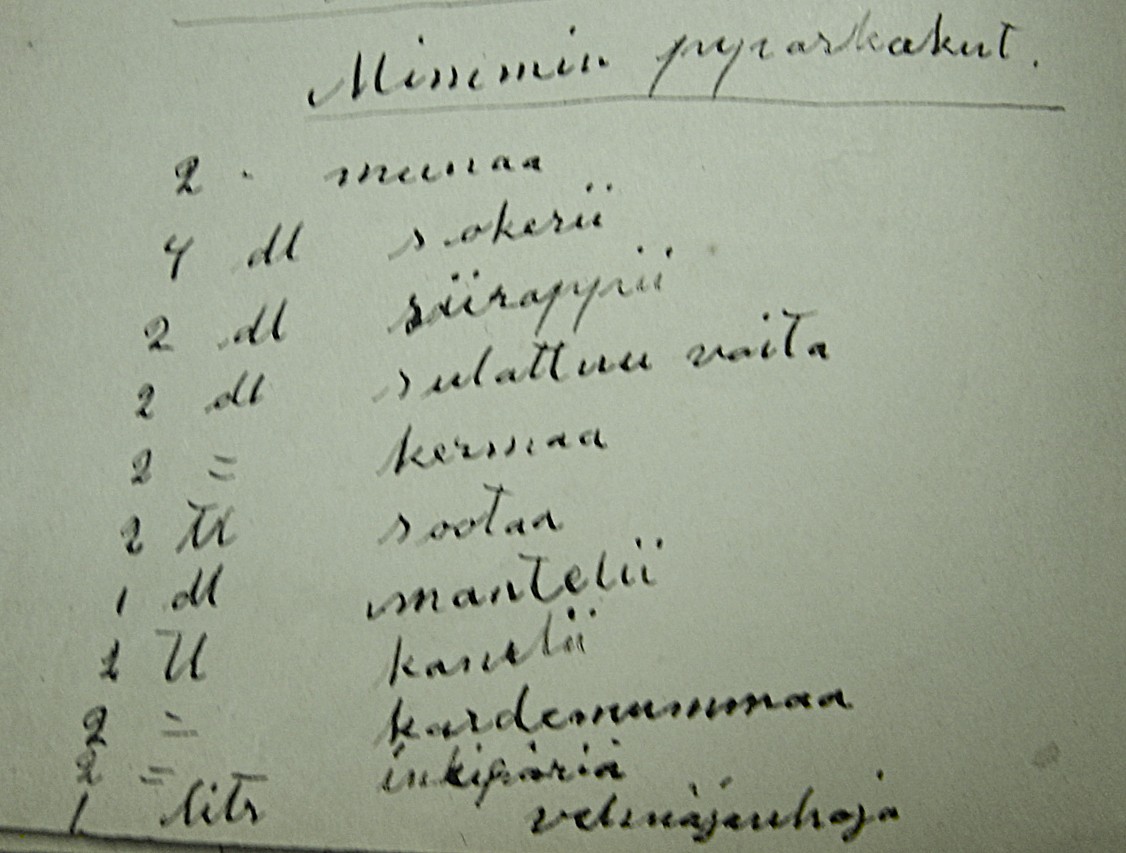 Mimmin pyparkakut.
2 munaa
4 dl sokerii
2 dl siirappii
2 dl sulattuu voita
2 = kermaa
2 tl sootaa
1 dl mantelii
2 tl kanelii
2 = kardemummaa
2 = inkipäriä
1 litr vehnäjauhoja